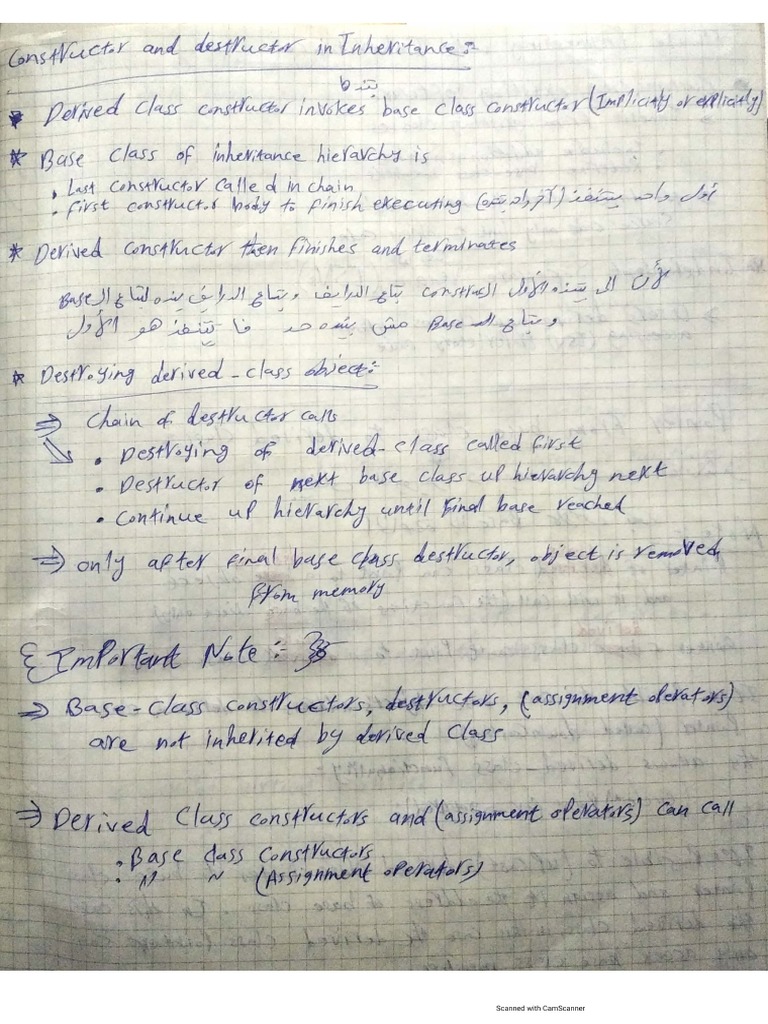 Constructor and destructor in Inheritance:-
Derived Class constructor invokes base class constructor (Implicitly or explicitly)
* Base Class of inheritance hierarchy is
• Last constructor called in chain
• First constructor body to finish executing (آخر واحد بينده) أول واحد يتنفذ
* Derived constructor then finishes and terminates
لأن الى بينده الأول الـ construct بتاع الدرايف وبتاع الدرايف ينده لبتاع الـ Base
وبتاع الـ Base مش بينده حد فا يتنفذ هو الأول
* Destroying derived-class object:-
⇒ Chain of destructor calls
• Destroying of derived-class called first
• Destructor of next base class up hierarchy next
• Continue up hierarchy until final base reached
⇒ only after final base class destructor, object is removed
from memory
{Important Note:-}
⇒ Base-Class constructors, destructors, (assignment operators)
are not inherited by derived Class
⇒ Derived Class constructors and (assignment operators) can call
• Base class Constructors
• " " (Assignment operators)
Scanned with CamScanner